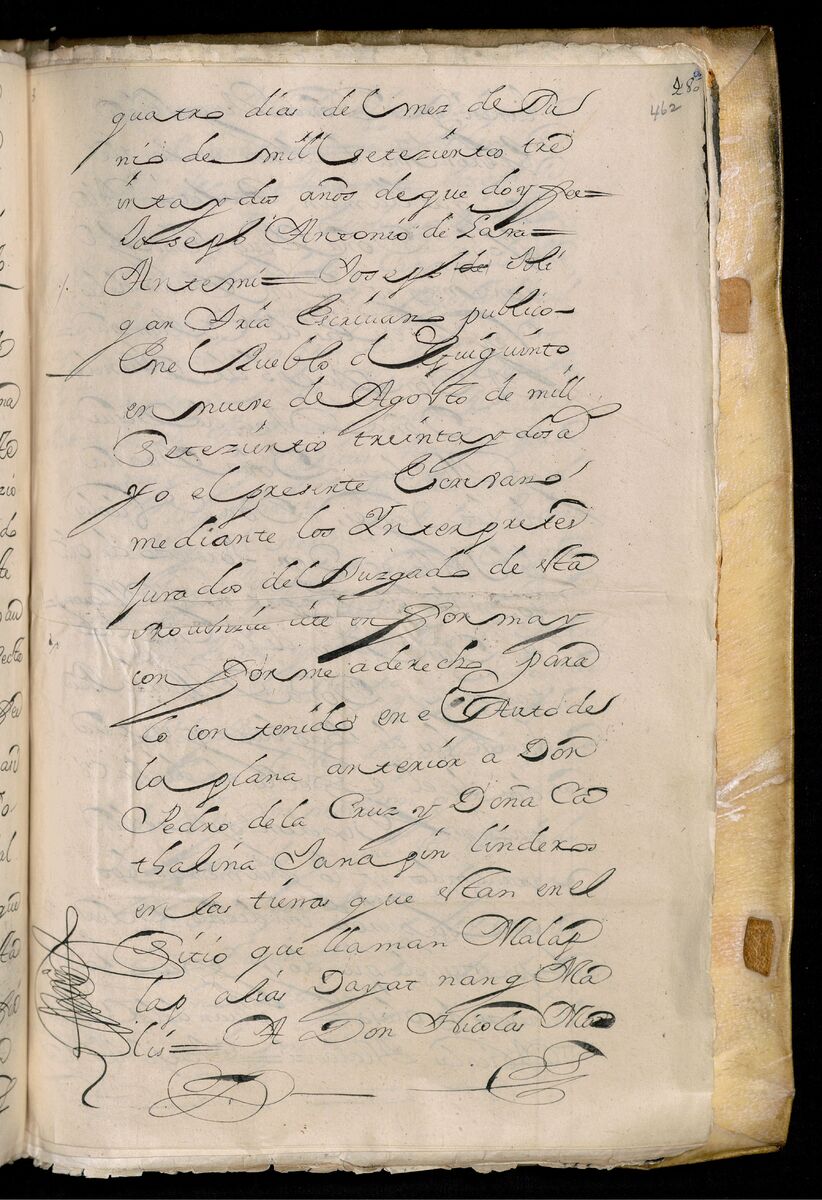 280
462
quatro dias del mez de Ju
nio de mill setezientos tre
inta y dos años de que doy fee=
Joseph Antonio de Lara=
Antemi= Joseph de Meli
gan Iria Escriuano publico-
Enel Pueblo d Quiguinto
en nueve de Agosto de mill
Setezientos treinta y dos a
yo el presente Escrivano
mediante los Ynterpretes
Jurados del Juzgado de esta
Prouinzia cite en forma y
con forme a derecho para
lo contenido en el Auto de
la plana anterior a Don
Pedro de la Cruz y Doña Ca
thalina Sanagin linderos
en las tierras que estan en el
Sitio que llaman Malap
lap alias Dayat nang Ma
lis= A Don Nicolas Ma